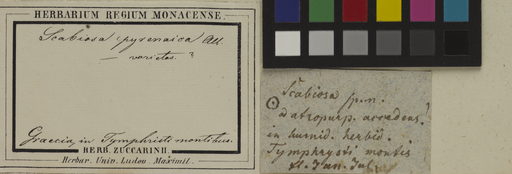 HERBARIUM REGIUM MONACENSE.
Scabiosa pyrenaica All.
— varietas.?
Graecia, in Tymphristi montibus.
HERB. ZUCCARINII.
Herbar. Univ. Ludov. Maximil.
Scabiosa sp. n.?
atropurp. accedens.
in humid. herbid.
Tymphrysti montis
fl. Jun. Jul.